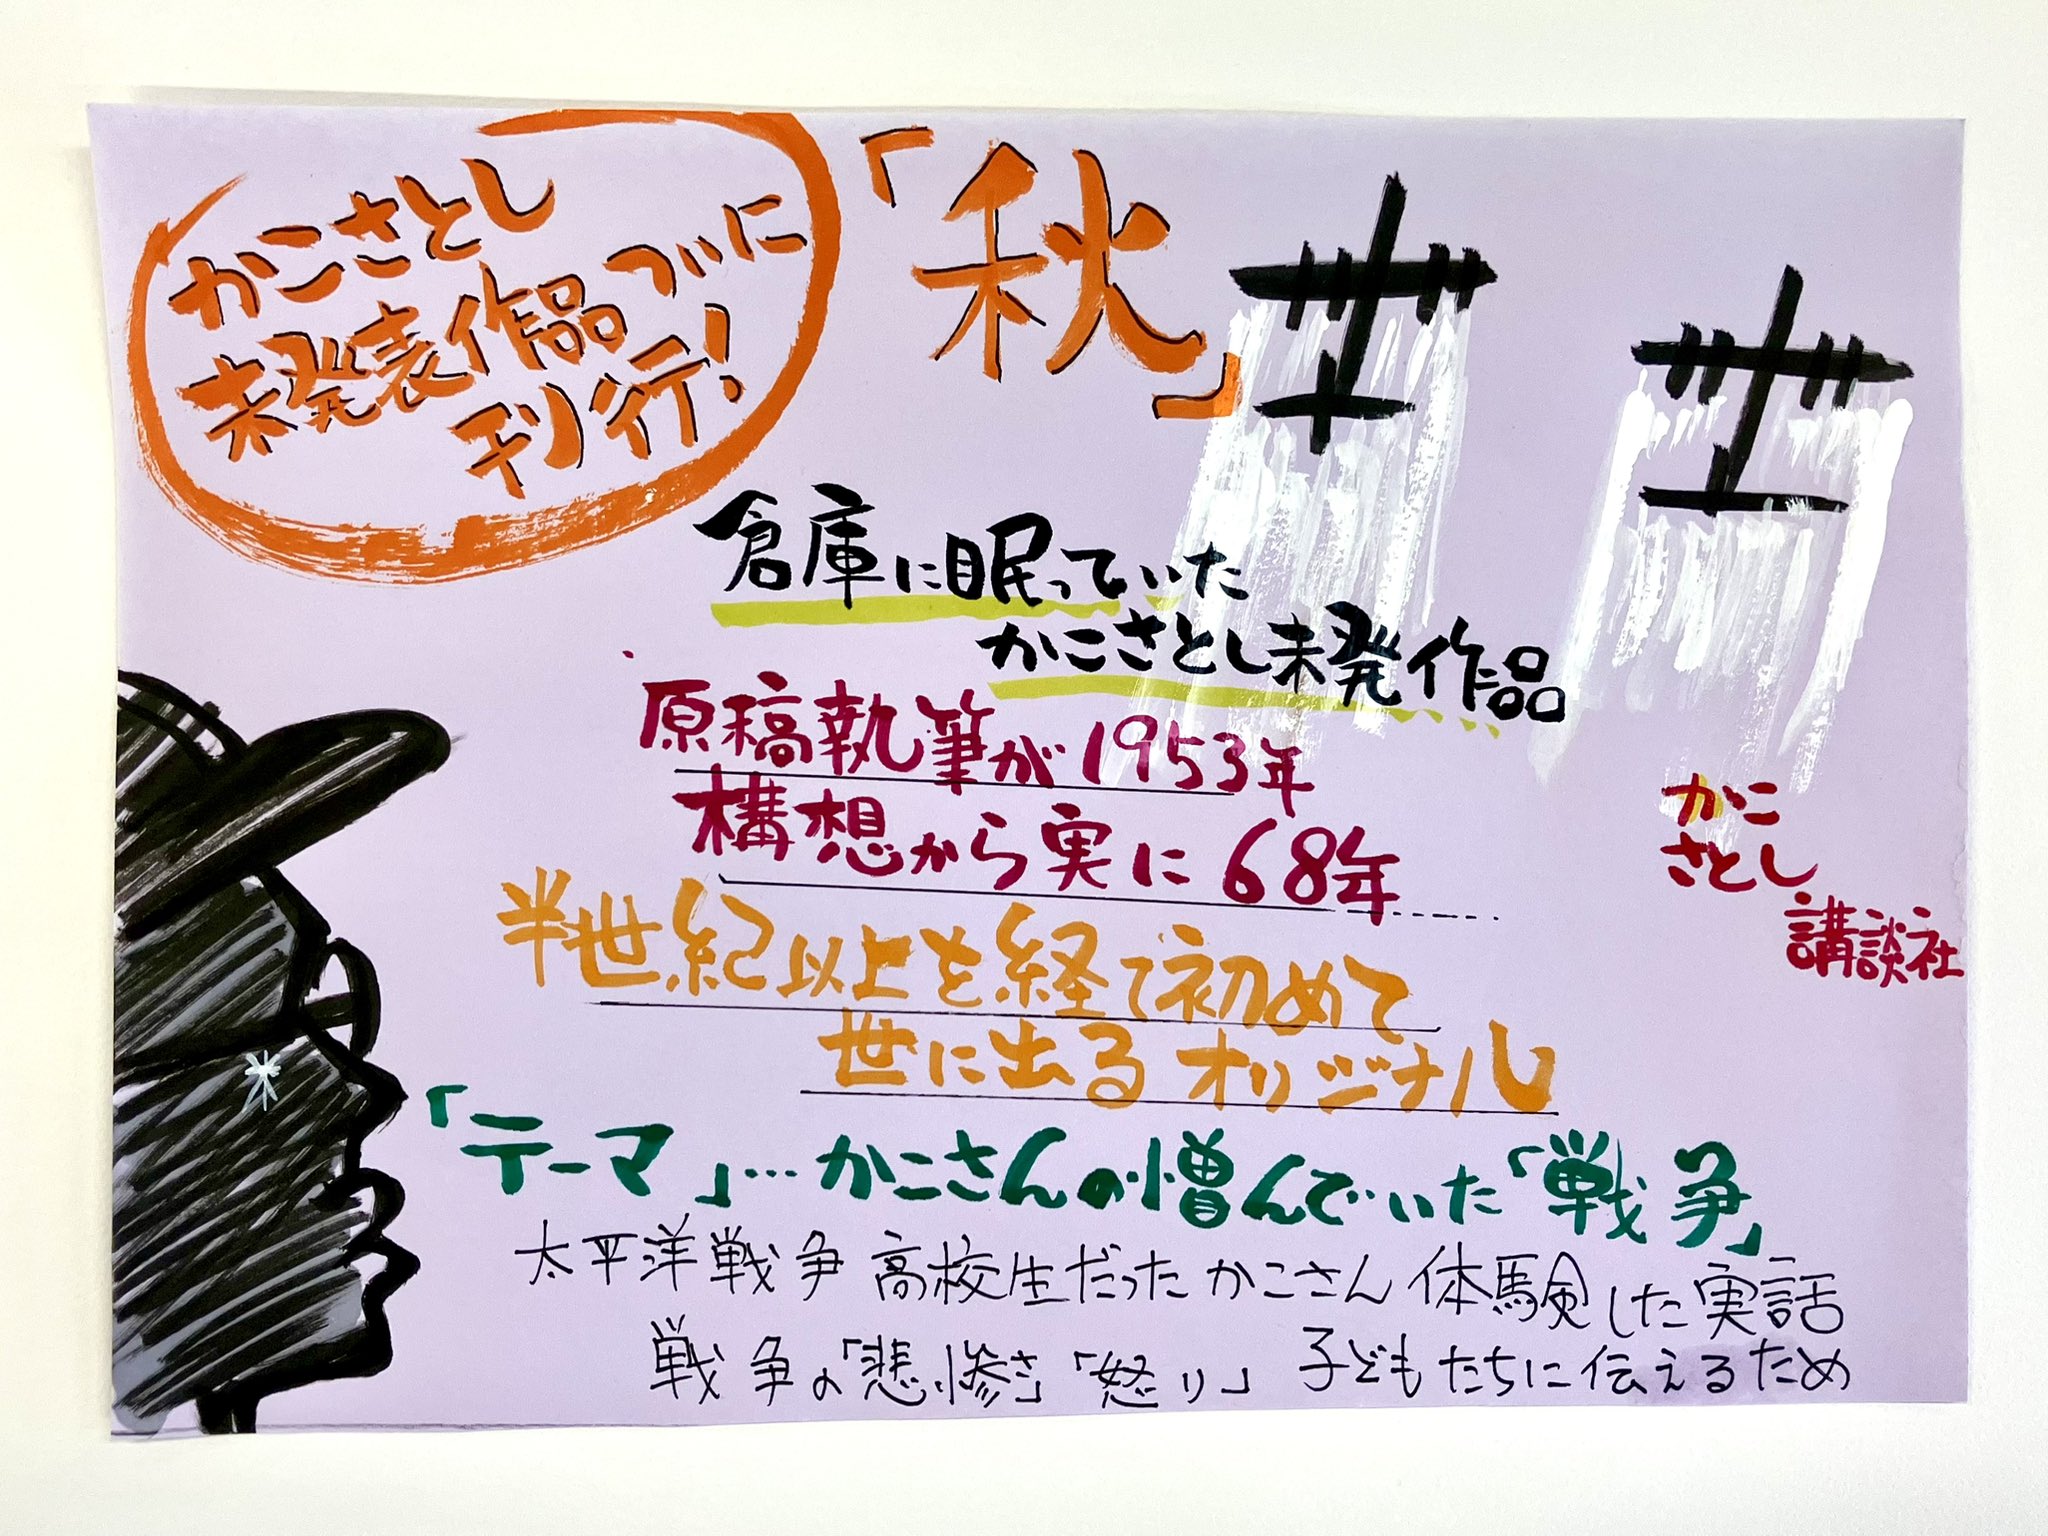 かこさとし
未発表作品ついに
刊行!
「秋」
倉庫に眠っていた
かこさとし未発作品
原稿執筆が1953年
構想から実に68年
半世紀以上を経て初めて
世に出るオリジナル
かこ
さとし
講談社
「テーマ」…かこさんの憎んでいた「戦争」
太平洋戦争高校生だったかこさん体験した実話
戦争の「悲惨さ」「怒り」子どもたちに伝えるため